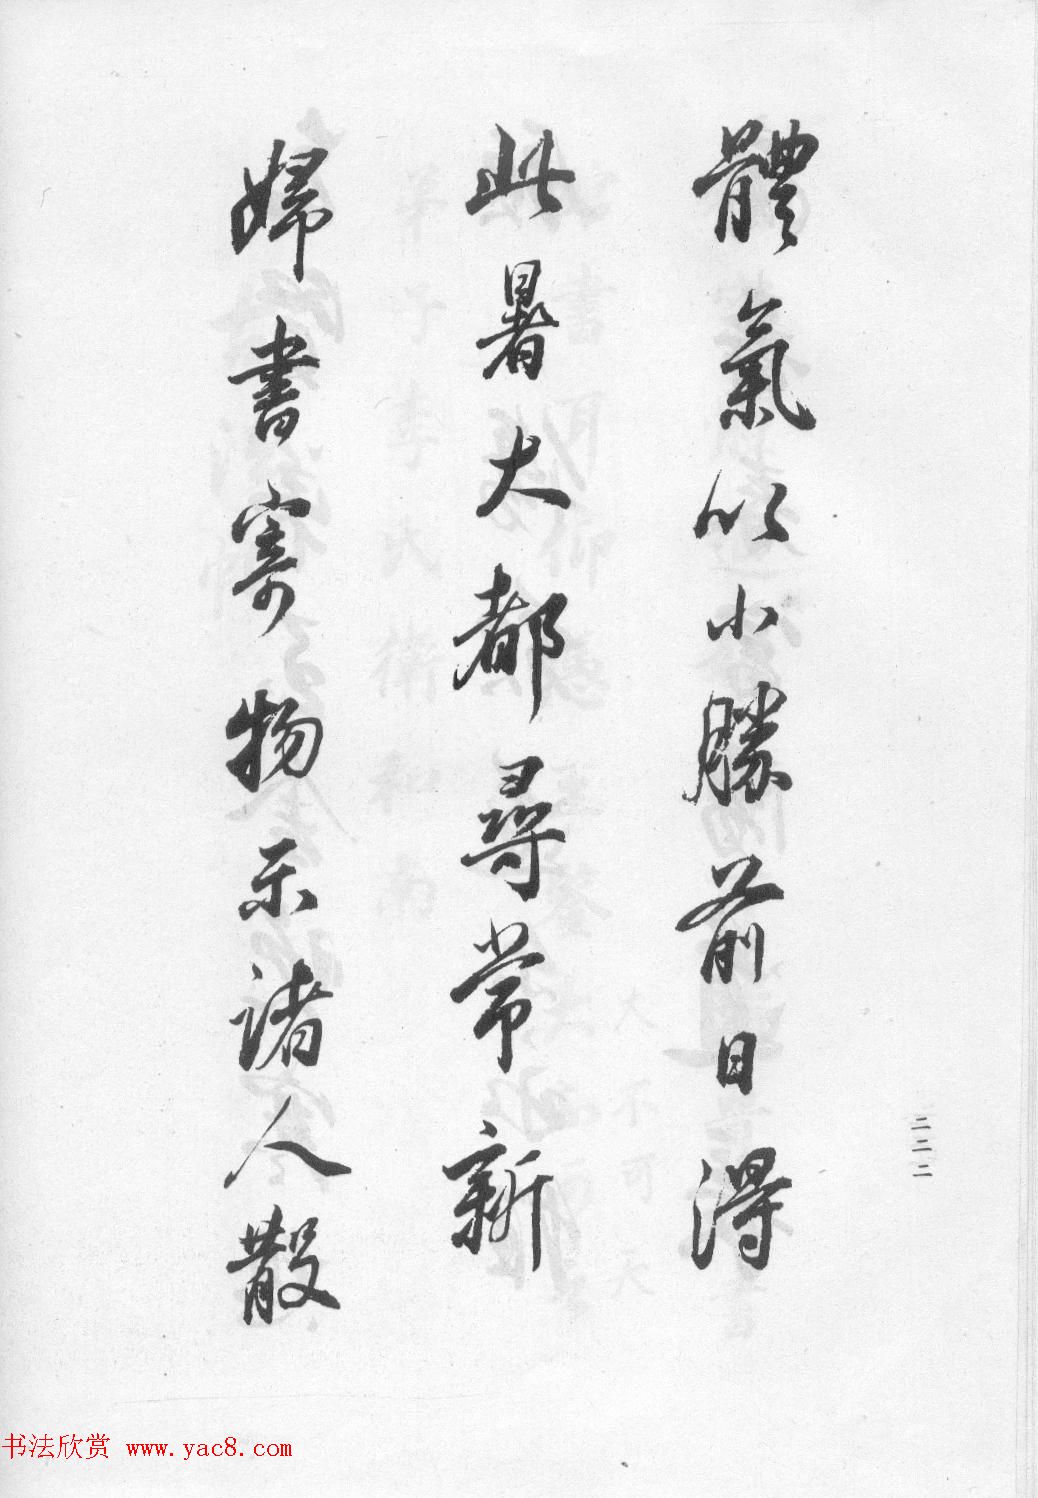 體氣以小勝前日得
此暑大都尋常新
婦書寄物示諸人散
二二二
书法欣赏 www.yac8.com